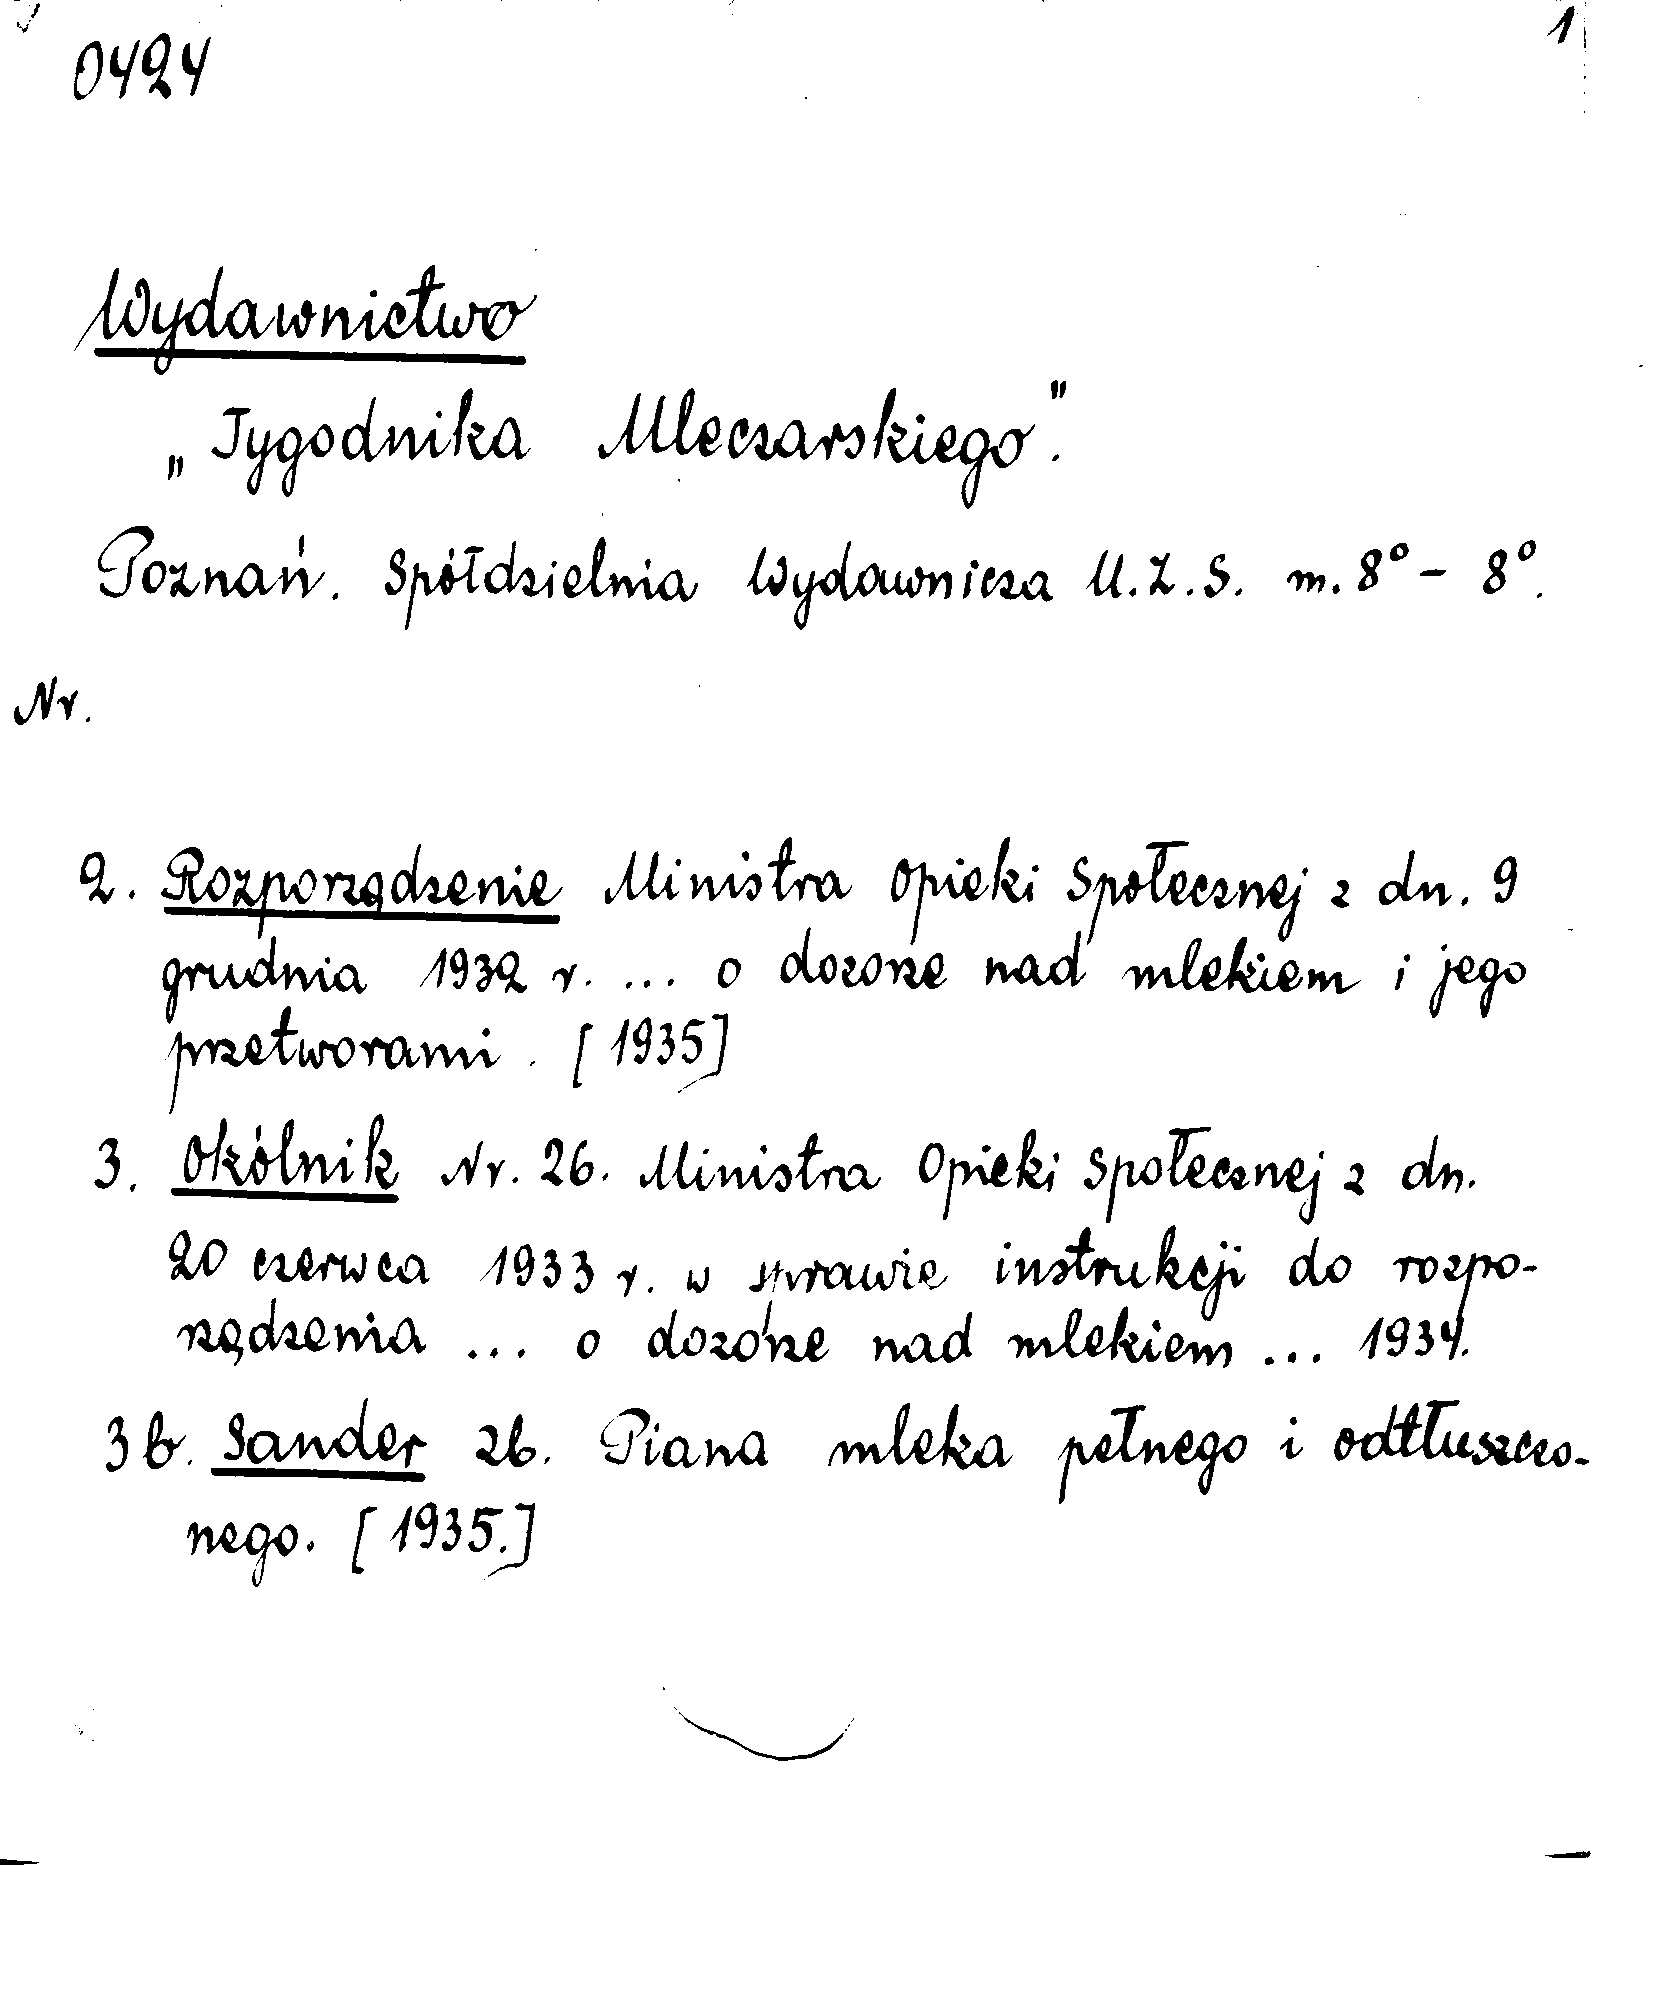 0424
1
Wydawnictwo
„Tygodnika Mleczarskiego".
Poznań. Spółdzielnia Wydawnicza U.Z.S. m. 8° – 8°.
Nr.
2. Rozporządzenie Ministra Opieki Społecznej z dn. 9
grudnia 1932 r. ... o dozorze nad mlekiem i jego
przetworami. [1935]
3. Okólnik Nr. 26. Ministra Opieki Społecznej z dn.
20 czerwca 1933 r. w sprawie instrukcji do rozpo-
rządzenia ... o dozorze nad mlekiem ... 1934.
3b. Sander Zb. Piana mleka pełnego i odtłuszczo-
nego. [1935.]